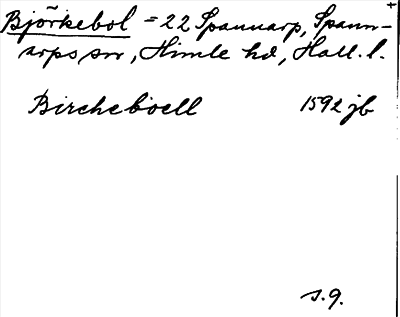 Björkebol = 22 Spannarp, Spann-
arps sn, Himle hd, Hall. l.
Bircheboell 1592 jb
s. 9.